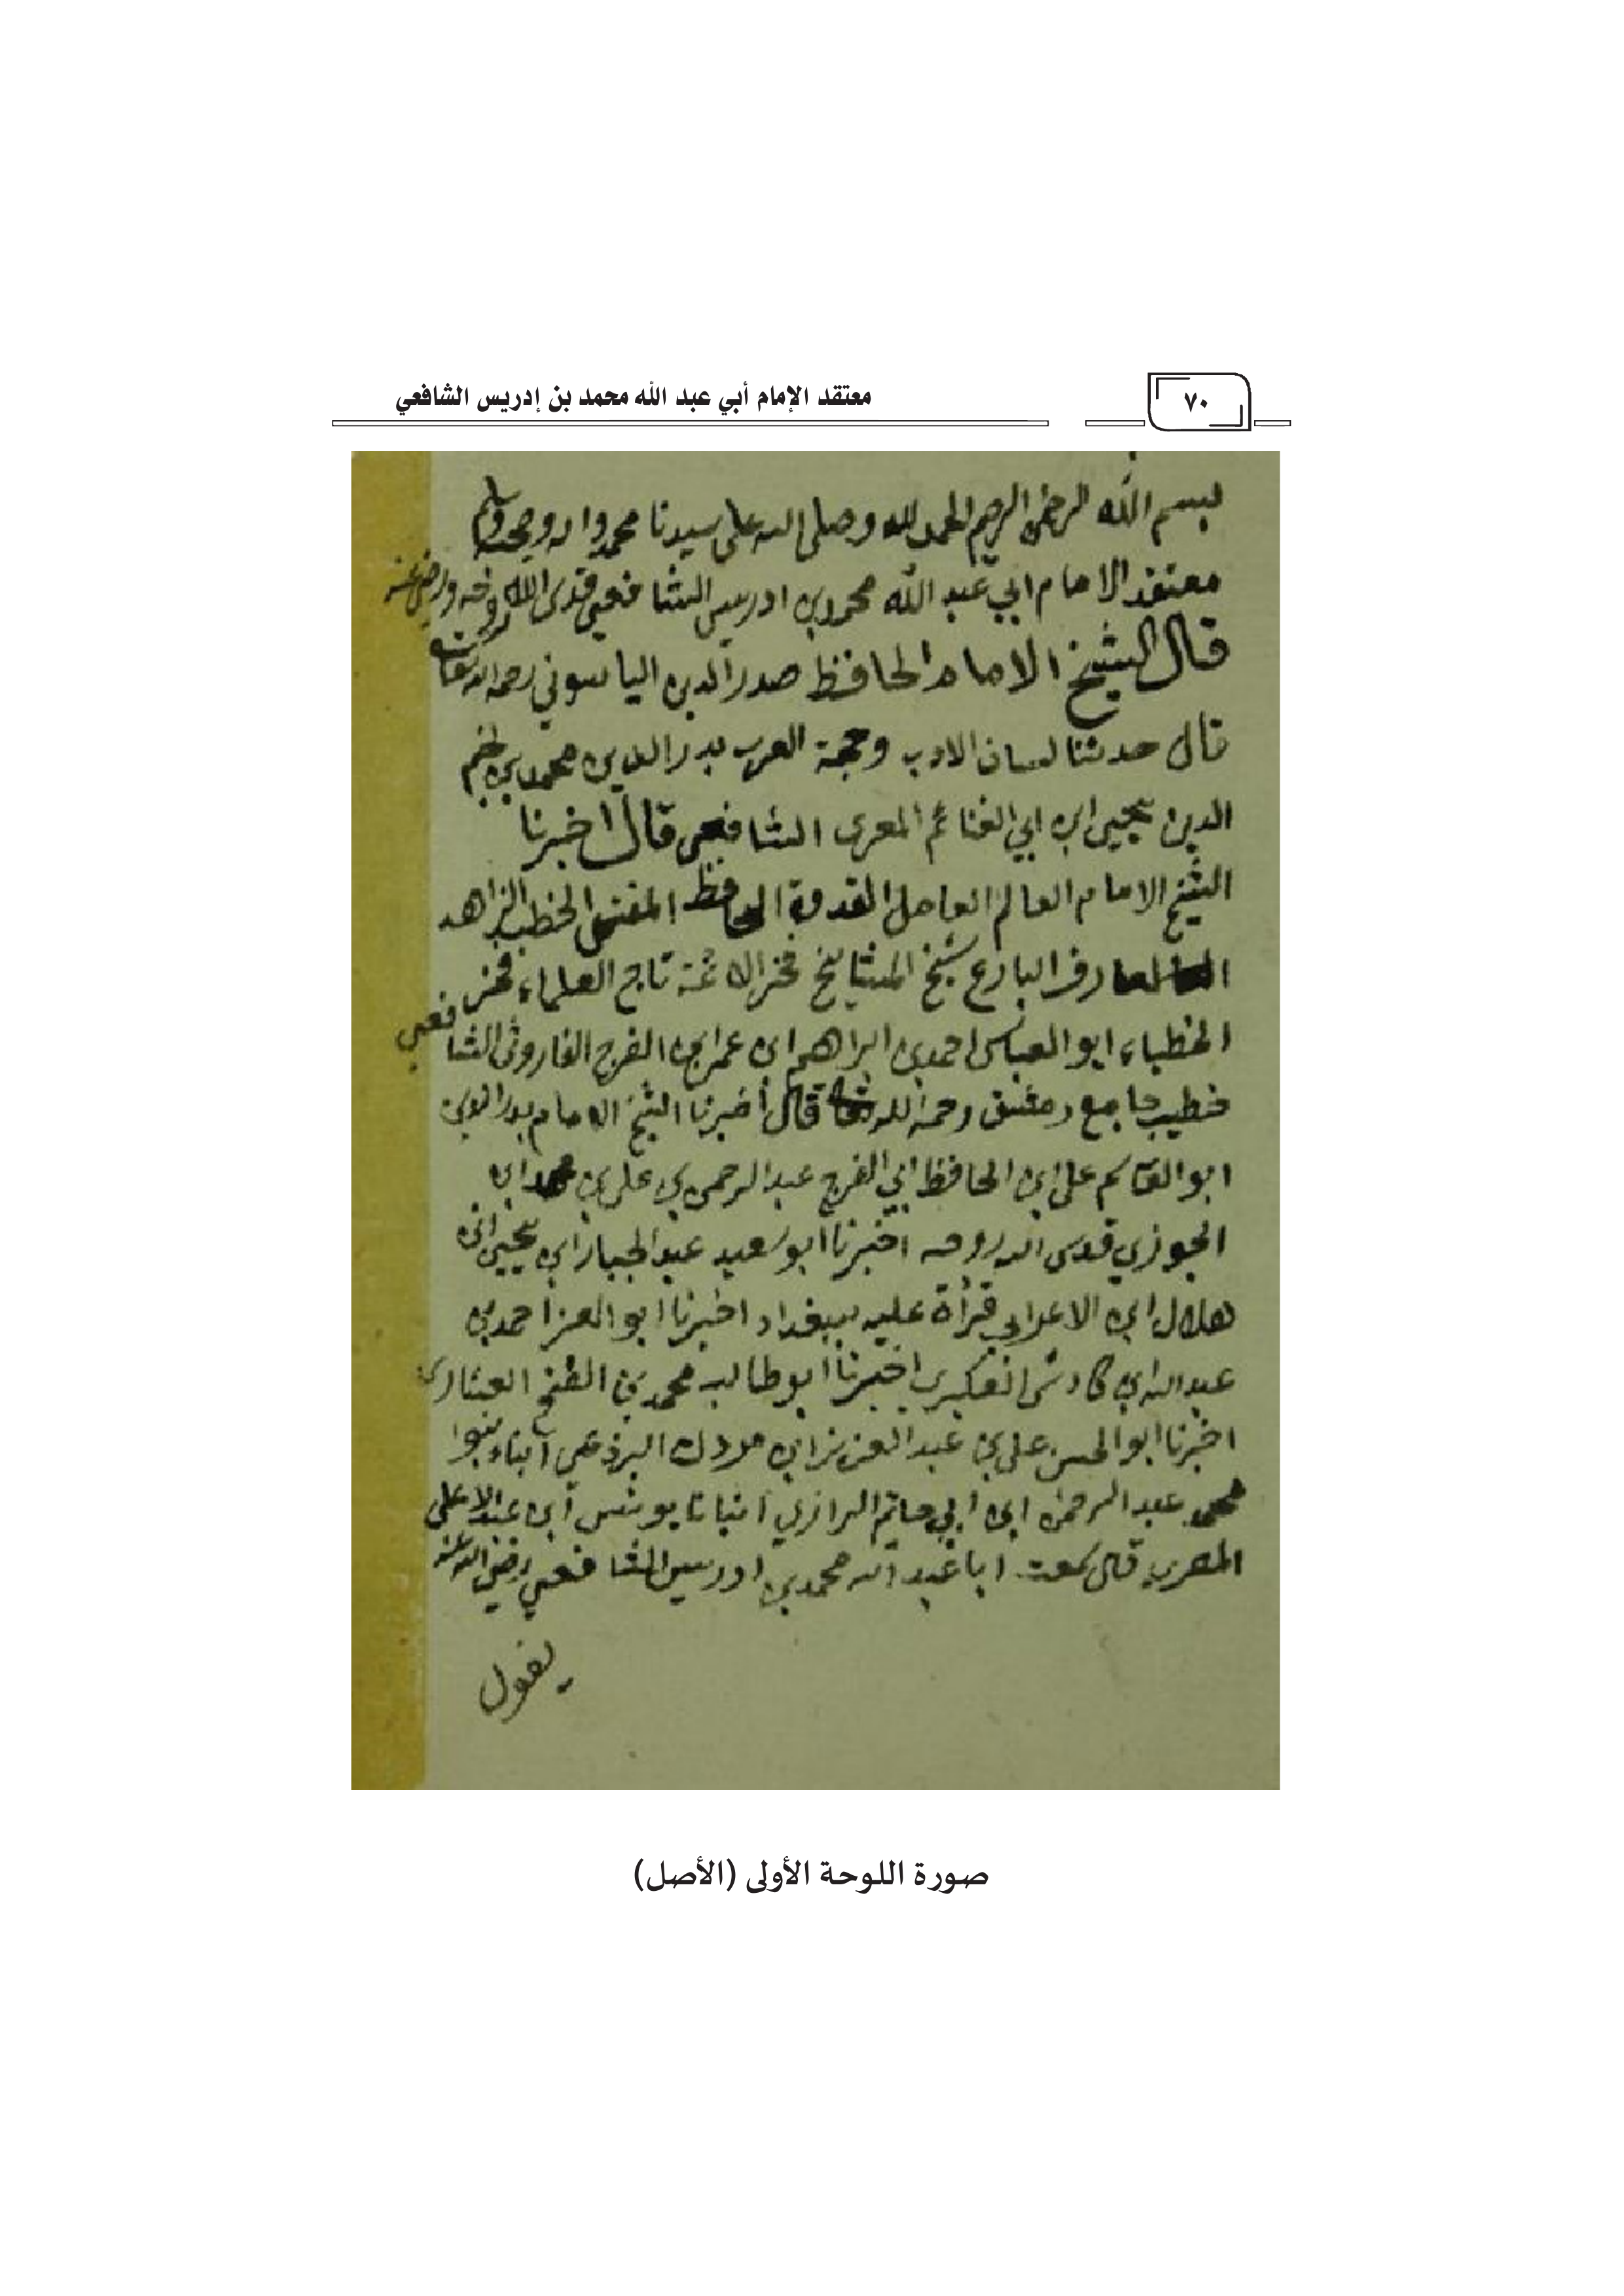 معتقد الإمام أبي عبد الله محمد بن إدريس الشافعي
٧٠
بسم الله الرحمن الرحيم الحمد لله وصلى الله على سيدنا محمد واله وصحبه وسلم
معتقد الامام ابي عبد الله محمد بن ادريس الشافعي قدس الله روحه ورضي عنه
قال الشيخ الامام الحافظ صدر الدين الياسوفي رحمه الله تعالى
قال حدثنا لسان الادب وحجة العرب بدر الدين محمد بن نجم
الدين يحيى ابن ابي الغنائم المعرى الشافعي قال اخبرنا
الشيخ الامام العالم العامل القدوة الحافظ المفتى الخطيب الزاهد
العارف البارع شيخ المشايخ فخر الائمة تاج العلماء فخر
الخطباء ابو العباس احمد بن ابراهيم ابن عمر ابن الفرج الفاروثى الشافعي
خطيب جامع دمشق رحمه الله قال أخبرنا الشيخ الامام بدر الدين
ابو القاسم على ابن الحافظ ابي الفرج عبد الرحمن بن على بن محمد ابن
الجوزي قدس الله روحه اخبرنا ابو سعيد عبد الجبار ابن يحيى ابن
هلال ابن الاعرابي قرأة عليه ببغداد اخبرنا ابو العز احمد بن
عبد الله ابن كادش العكبرى اخبرنا ابو طالب محمد بن الفتح العشارى
اخبرنا ابو الحسن على بن عبد العزيز ابن مردك البرذعي أنباء نبوا
محمد عبد الرحمن ابن ابي حاتم الرازي انبانا يونس ابن عبد الاعلى
المصري قال سمعت ابا عبد الله محمد بن ادريس الشافعي رضي الله عنه
يقول
صورة اللوحة الأولى (الأصل)